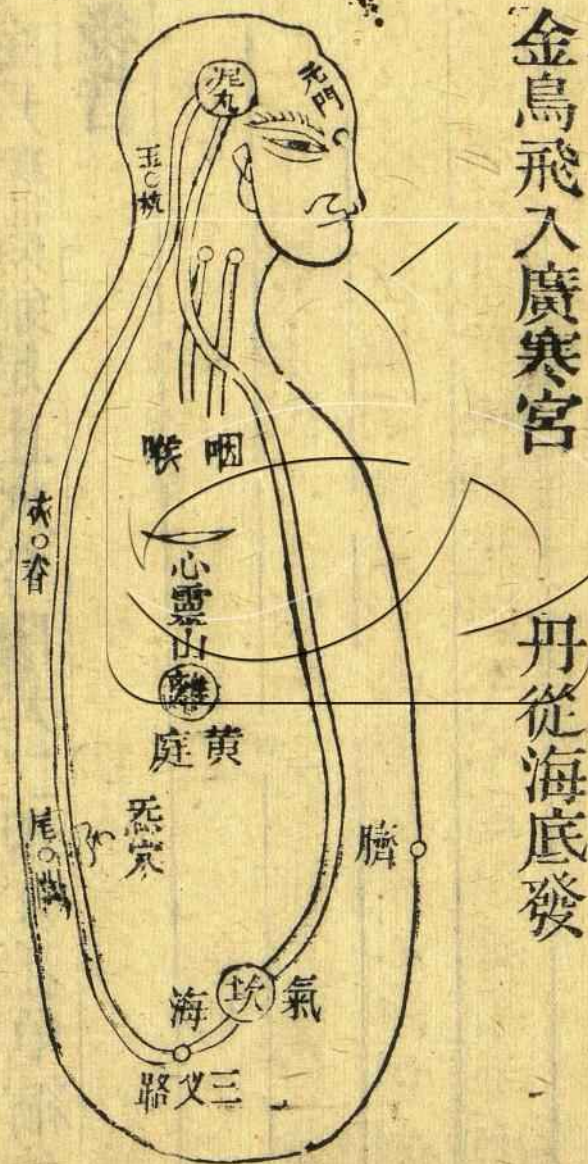 金鳥飛入廣寒宮
丹從海底發
元門
泥丸
玉枕
咽喉
夾脊
心靈山
離
黄庭
炁穴
尾閭
臍
氣海
坎
三叉路